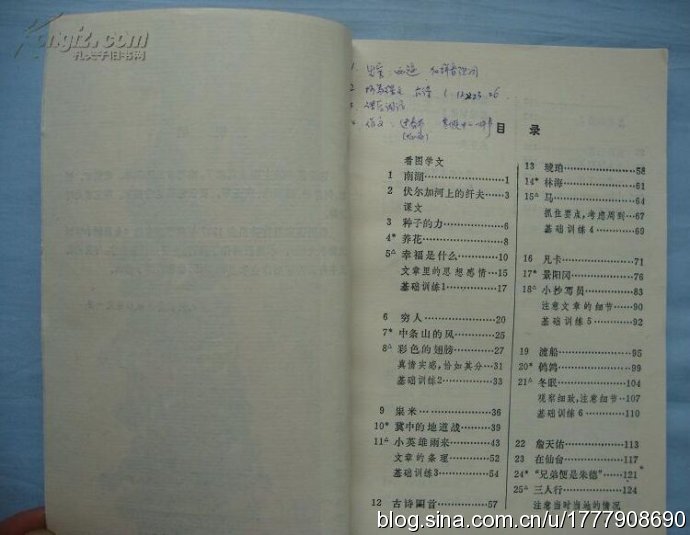 Kongfz.com
孔夫子旧书网
目 录
看图学文
1 南湖……1
2 伏尔加河上的纤夫……3
课文
3 种子的力……6
4* 养花……8
5△ 幸福是什么……10
文章里的思想感情……15
基础训练1……17
6 穷人……20
7* 中条山的风……25
8△ 彩色的翅膀……27
真情实感,恰如其分……31
基础训练2……33
9 粜米……36
10* 冀中的地道战……39
11△ 小英雄雨来……43
文章的条理……52
基础训练3……54
12 古诗四首……57
13 琥珀……58
14* 林海……61
15△ 马……64
抓住要点,考虑周到……67
基础训练4……69
16 凡卡……71
17* 景阳冈……76
18△ 小抄写员……83
注意文章的细节……90
基础训练5……92
19 渡船……95
20* 鹌鹑……99
21△ 冬眠……104
观察细致,注意细节……107
基础训练6……110
22 詹天佑……113
23 在仙台……117
24* “兄弟便是朱德”……121
25△ 三人行……124
注意当时当地的情况
blog.sina.com.cn/u/1777908690